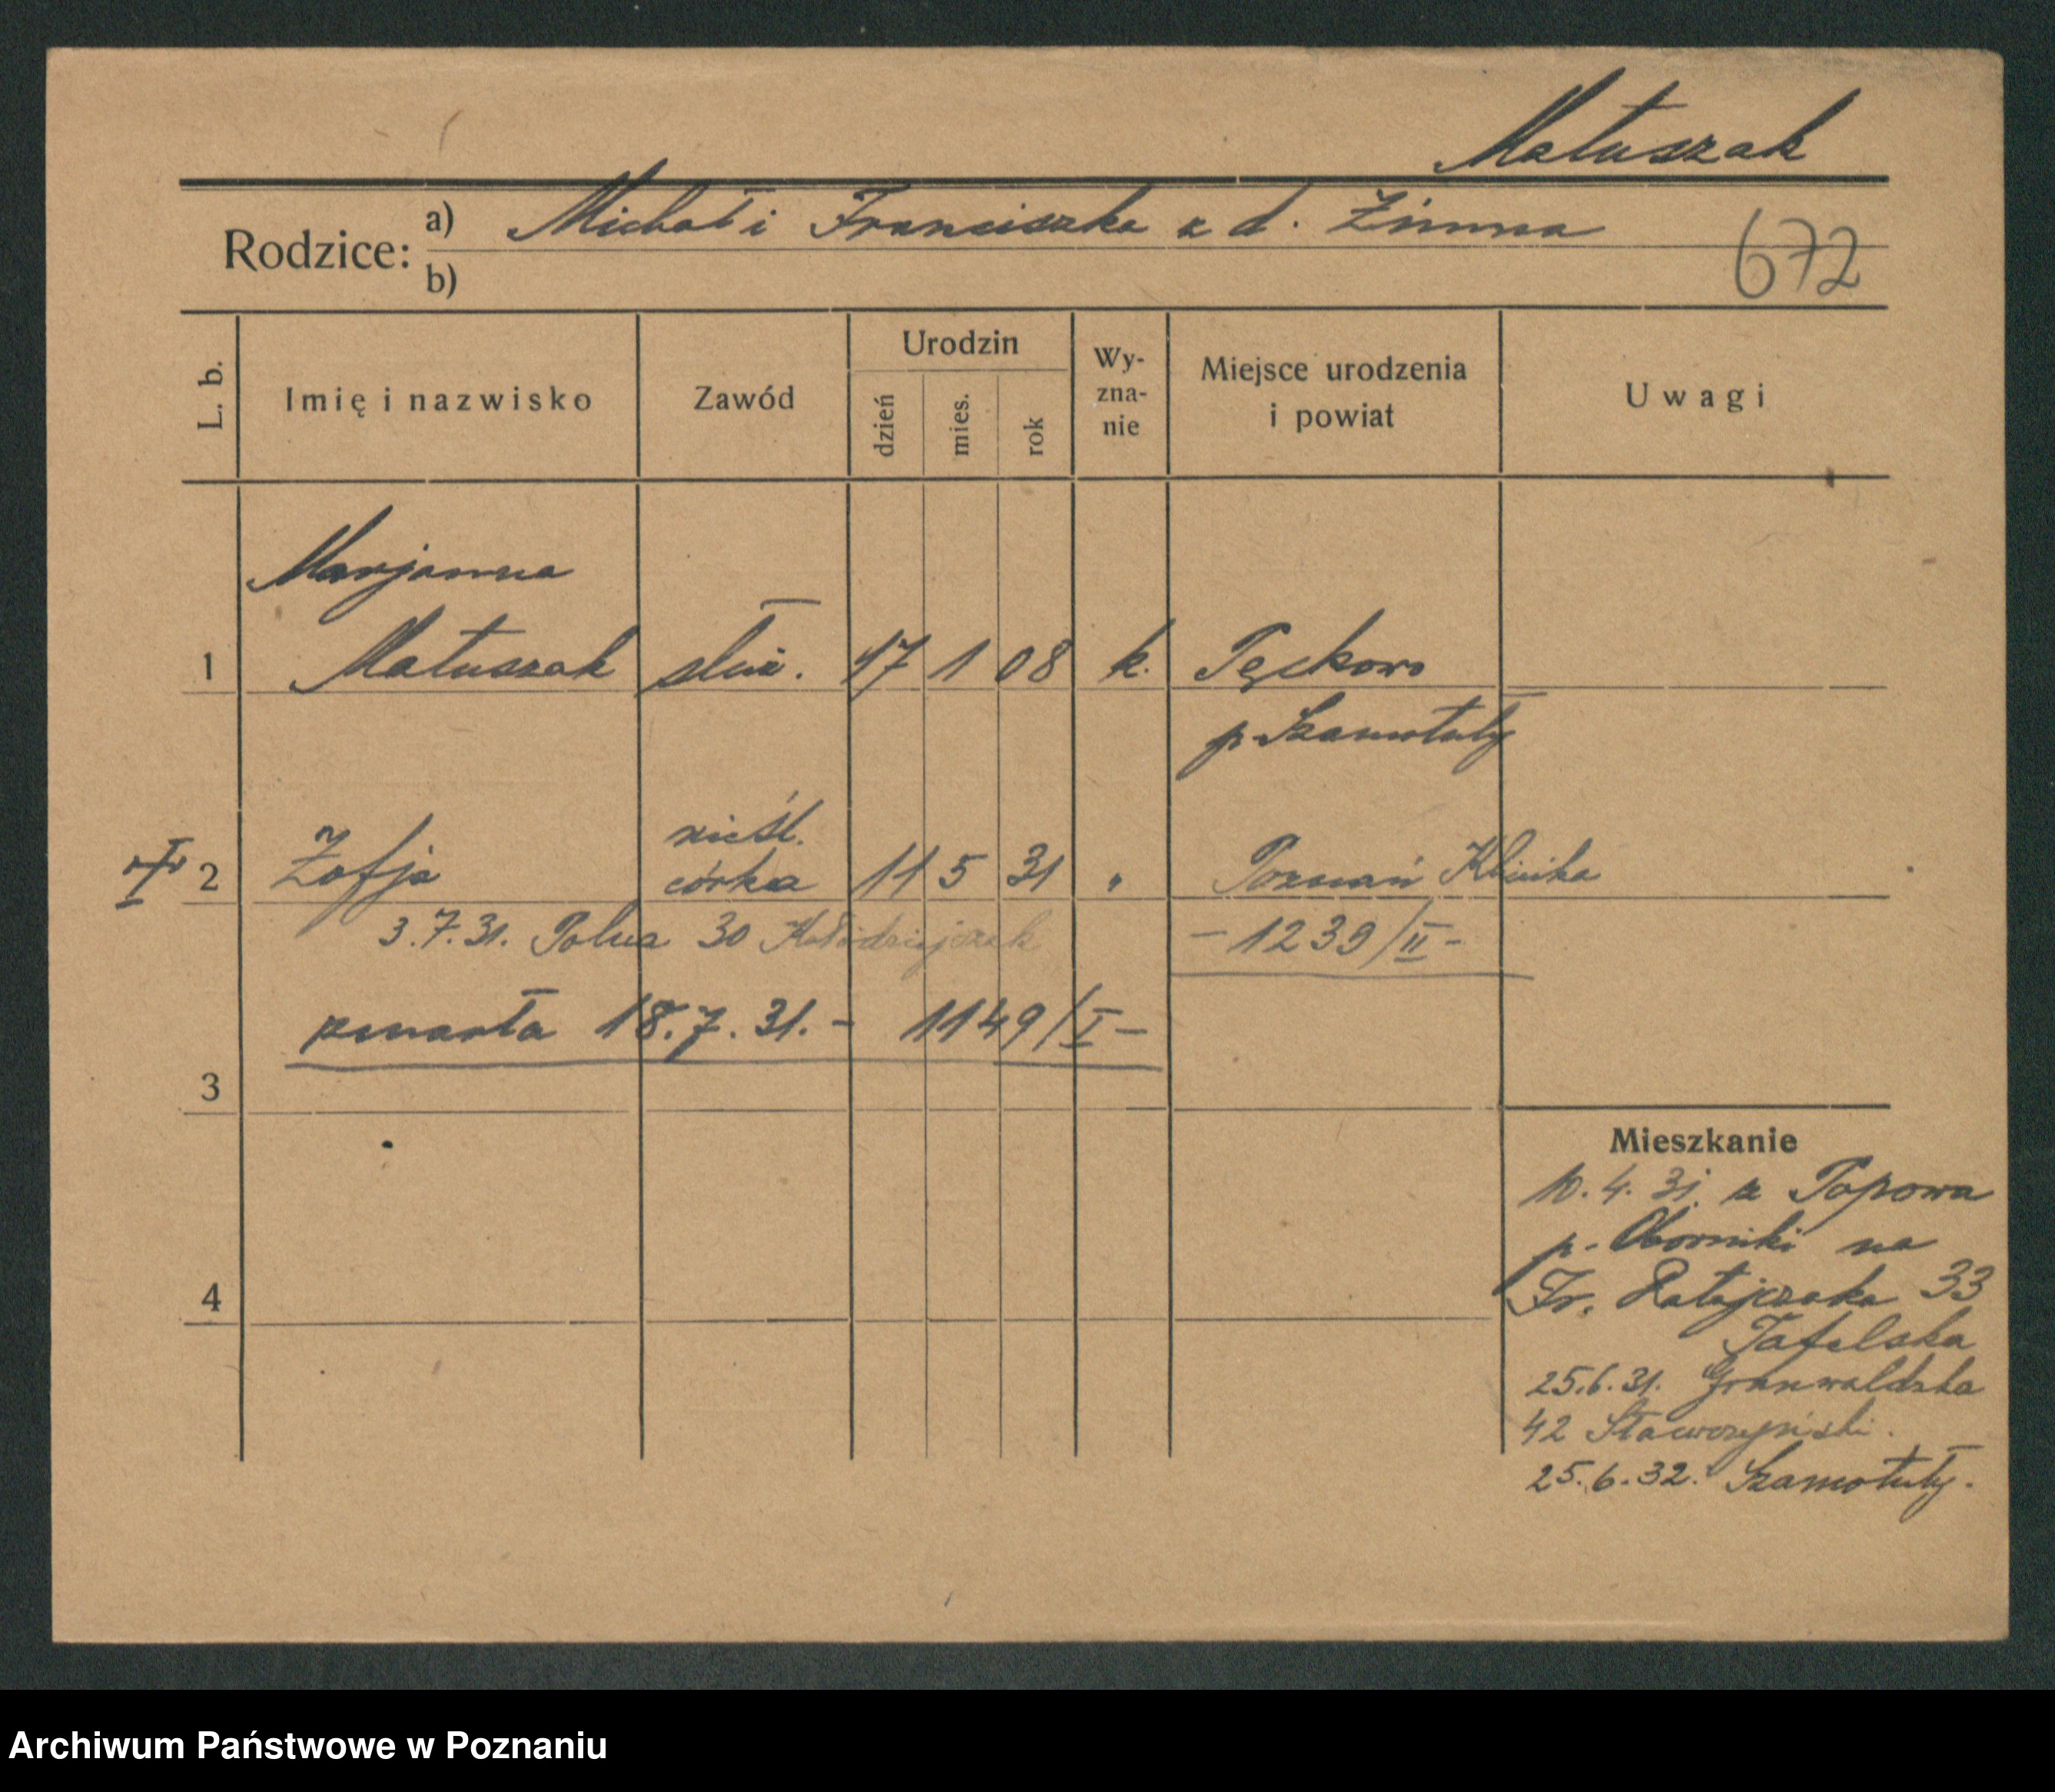 Matuszak
Rodzice:
a) Michał i Franciszka z d. Zimna
b)
672
L. b.
Imię i nazwisko
Zawód
Urodzin
dzień
mies.
rok
Wy-
zna-
nie
Miejsce urodzenia
i powiat
Uwagi
Marjanna
1 Matuszak służ. 17 1 08 k.
p. Szamotuły
nieśl.
2 Zofja córka 11 5 31 " Poznań Klinika
3.7.31. Polna 30 Kołodziejczak - 1239/II -
zmarła 18.7.31. - 1149/I -
3
4
Mieszkanie
10.4.31. z Popowa
p. Oborniki na
Fr. Ratajczaka 33
Tafelska
25.6.31. Grunwaldzka
42
25.6.32. Szamotuły.
Archiwum Państwowe w Poznaniu